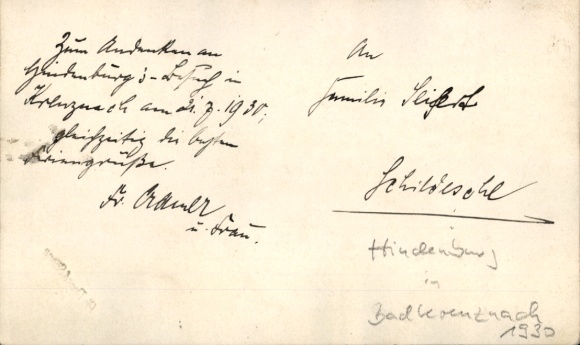 Zum Andenken an
Hindenburg's-Besuch in
Kreuznach am 21.7.1930;
gleichzeitig die besten
Feriengrüße.
Fr. Cramer
u. Frau.
An
Familie
Schildesche
Hindenburg
in
Bad Kreuznach
1930